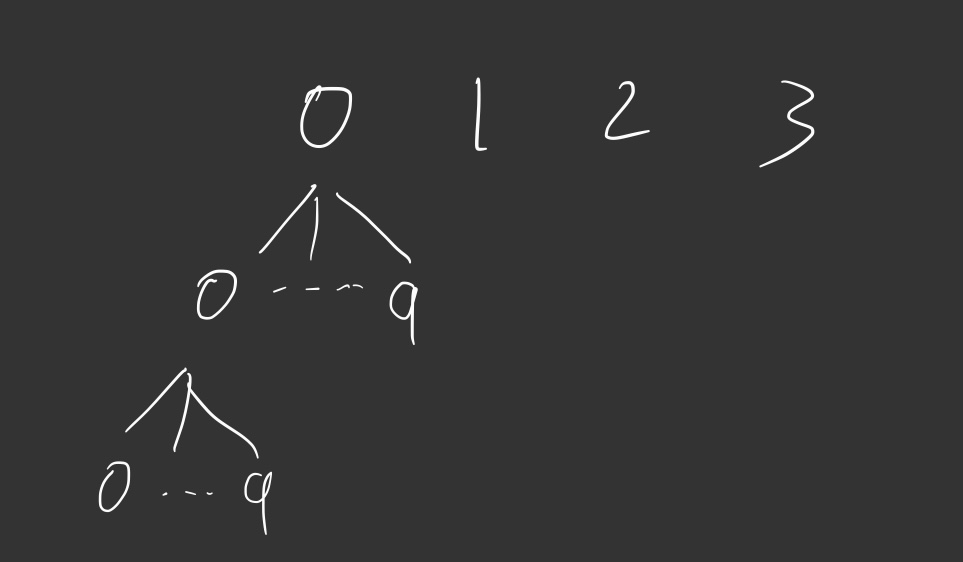 0 1 2 3
0 --- 9
0 --- 9